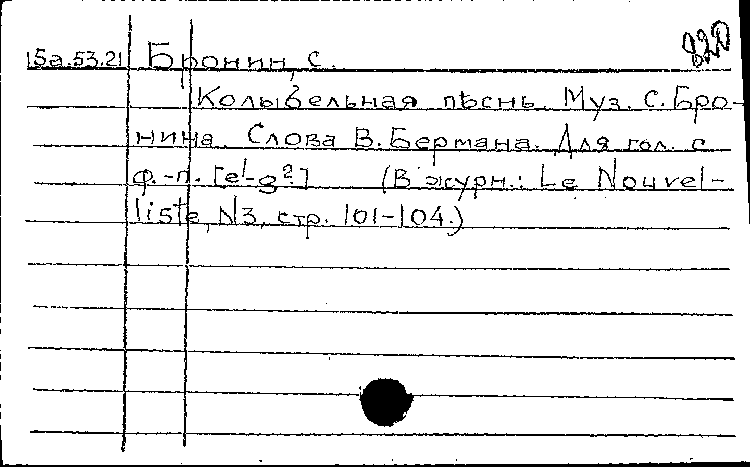 15а.53.21 Бронин, С.
Колыбельная пѣснь. Муз. С. Бро-
нина. Слова В. Бермана. Для гол. с
ф.-п. [e¹-g²] (В журн.: Le Nouvel-
liste, N3, стр. 101-104.)